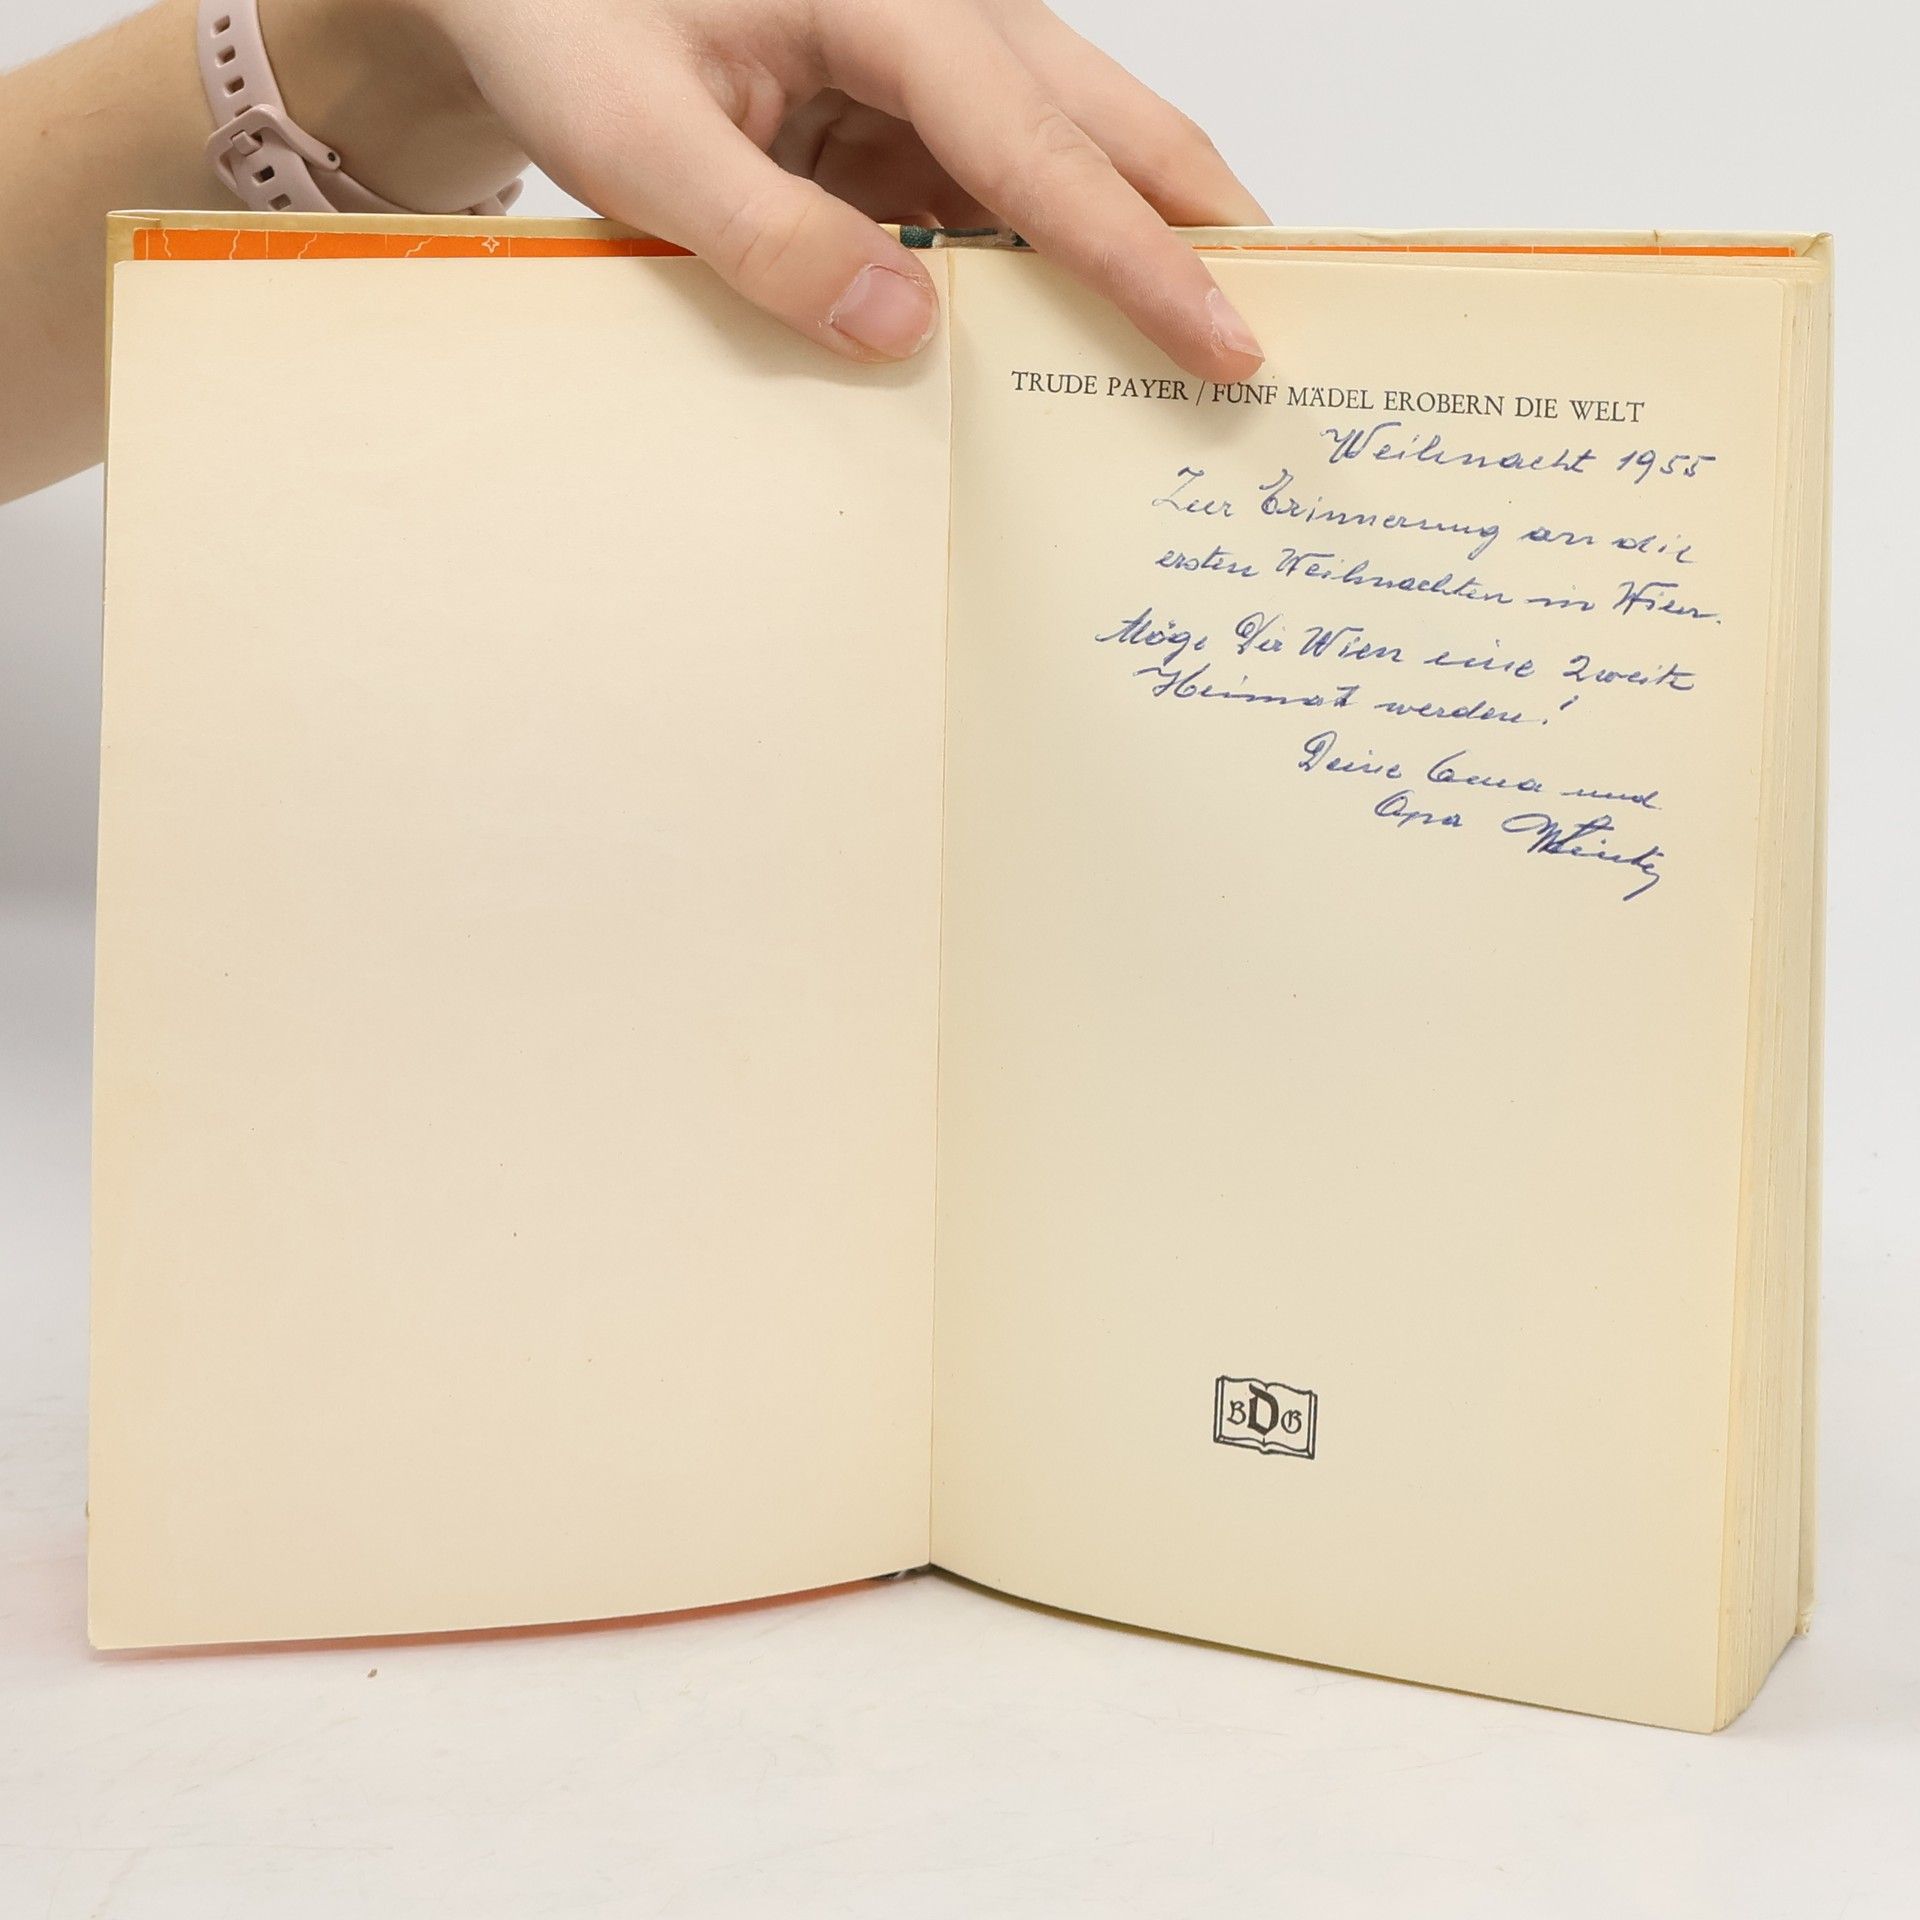 TRUDE PAYER / FÜNF MÄDEL EROBERN DIE WELT
Weihnacht 1955
Zur Erinnerung an die
ersten Weihnachten in Wien.
Möge Dir Wien eine zweite
Heimat werden!
Deine Oma und
Opa
BDG